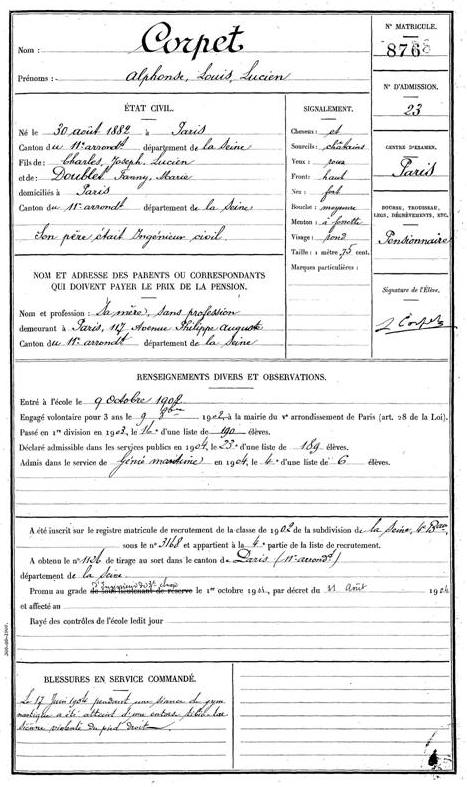 Nom : Corpet
Prénoms : Alphonse, Louis, Lucien
N° MATRICULE.
8768
N° D'ADMISSION.
23
CENTRE D'EXAMEN.
Paris
BOURSE, TROUSSEAU, LEGS, DÉGRÈVEMENTS, ETC.
Pensionnaire
Signature de l'Élève.
L Corpet
ÉTAT CIVIL.
Né le 30 août 1882 à Paris
Canton du 11e arrondt département de la Seine
Fils de : Charles, Joseph, Lucien
et de : Doublet Fanny, Marie
domiciliés à Paris
Canton du 11e arrondt département de la Seine
Son père était Ingénieur civil.
SIGNALEMENT.
Cheveux : et
Sourcils : châtains
Yeux : roux
Front : haut
Nez : fort
Bouche : moyenne
Menton : à fossette
Visage : rond
Taille : 1 mètre, 75 cent.
Marques particulières :
NOM ET ADRESSE DES PARENTS OU CORRESPONDANTS
QUI DOIVENT PAYER LE PRIX DE LA PENSION.
Nom et profession : Sa mère, sans profession
demeurant à Paris, 117 Avenue Philippe Auguste
Canton du 11e arrondt département de la Seine
RENSEIGNEMENTS DIVERS ET OBSERVATIONS.
Entré à l'école le 9 octobre 1902
Engagé volontaire pour 3 ans le 9 8bre 1902, à la mairie du Ve arrondissement de Paris (art. 28 de la Loi).
Passé en 1re division en 1903, le 16e d'une liste de 190 élèves.
Déclaré admissible dans les services publics en 1904, le 23e d'une liste de 189 élèves.
Admis dans le service de Génie maritime en 1904, le 4e d'une liste de 6 élèves.
A été inscrit sur le registre matricule de recrutement de la classe de 1902 de la subdivision de la Seine, 4e Bau
sous le n° 3168 et appartient à la 4e partie de la liste de recrutement.
A obtenu le n° 1126 de tirage au sort dans le canton de Paris (11e arrondt)
département de la Seine
d'Ingénieur de 3e classe
Promu au grade de sous-lieutenant de réserve le 1er octobre 1904, par décret du 31 Août 1904
et affecté au
Rayé des contrôles de l'école ledit jour
BLESSURES EN SERVICE COMMANDÉ.
Le 17 Juin 1904 pendant une séance de gym
nastique a été atteint d'une entorse tibio-tar
sienne violente du pied droit